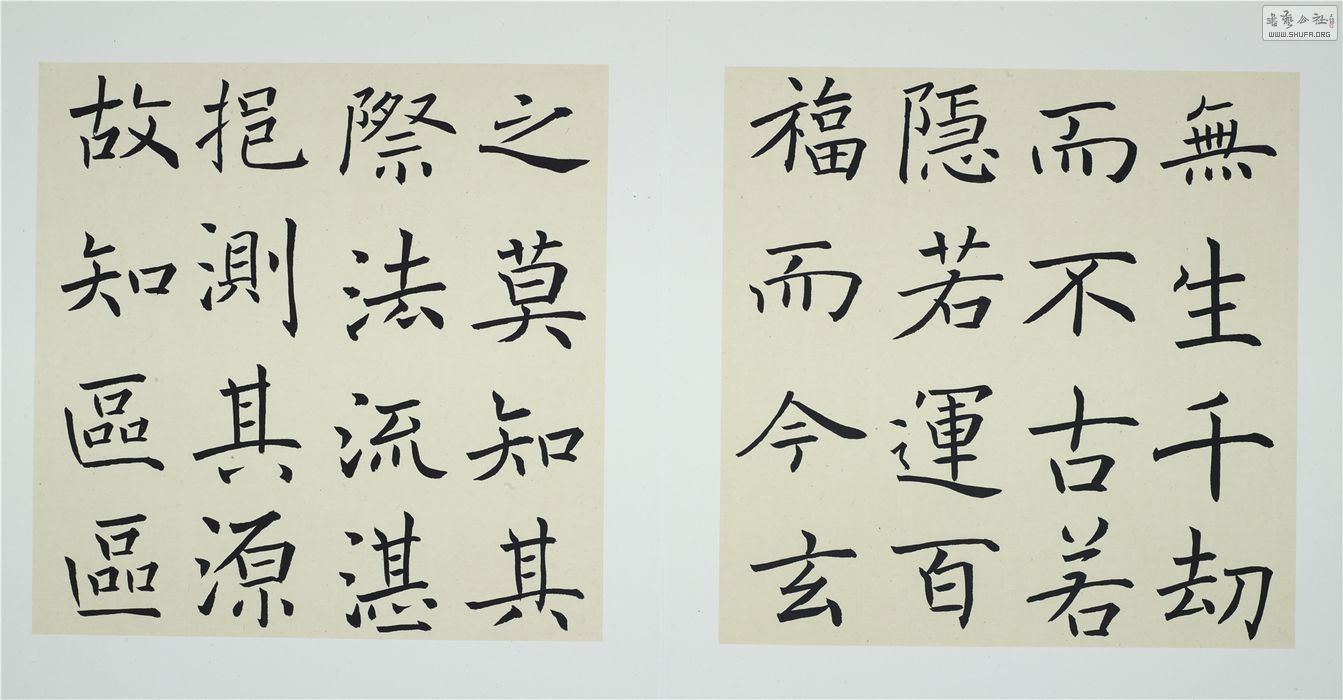 無生千刧
而不古若
隱若運百
福而今玄
之莫知其
際法流湛
挹測其源
故知區區
書藝公社
WWW.SHUFA.ORG